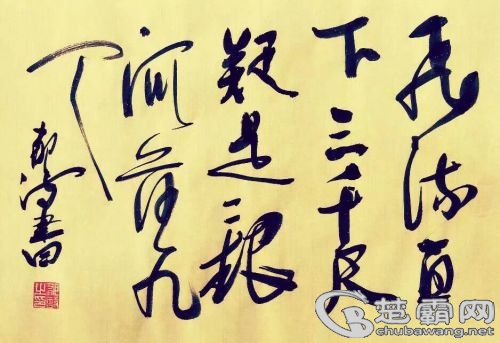 飞流直
下三千尺
疑是银
河落九
天
书
楚霸网
chubawang.net